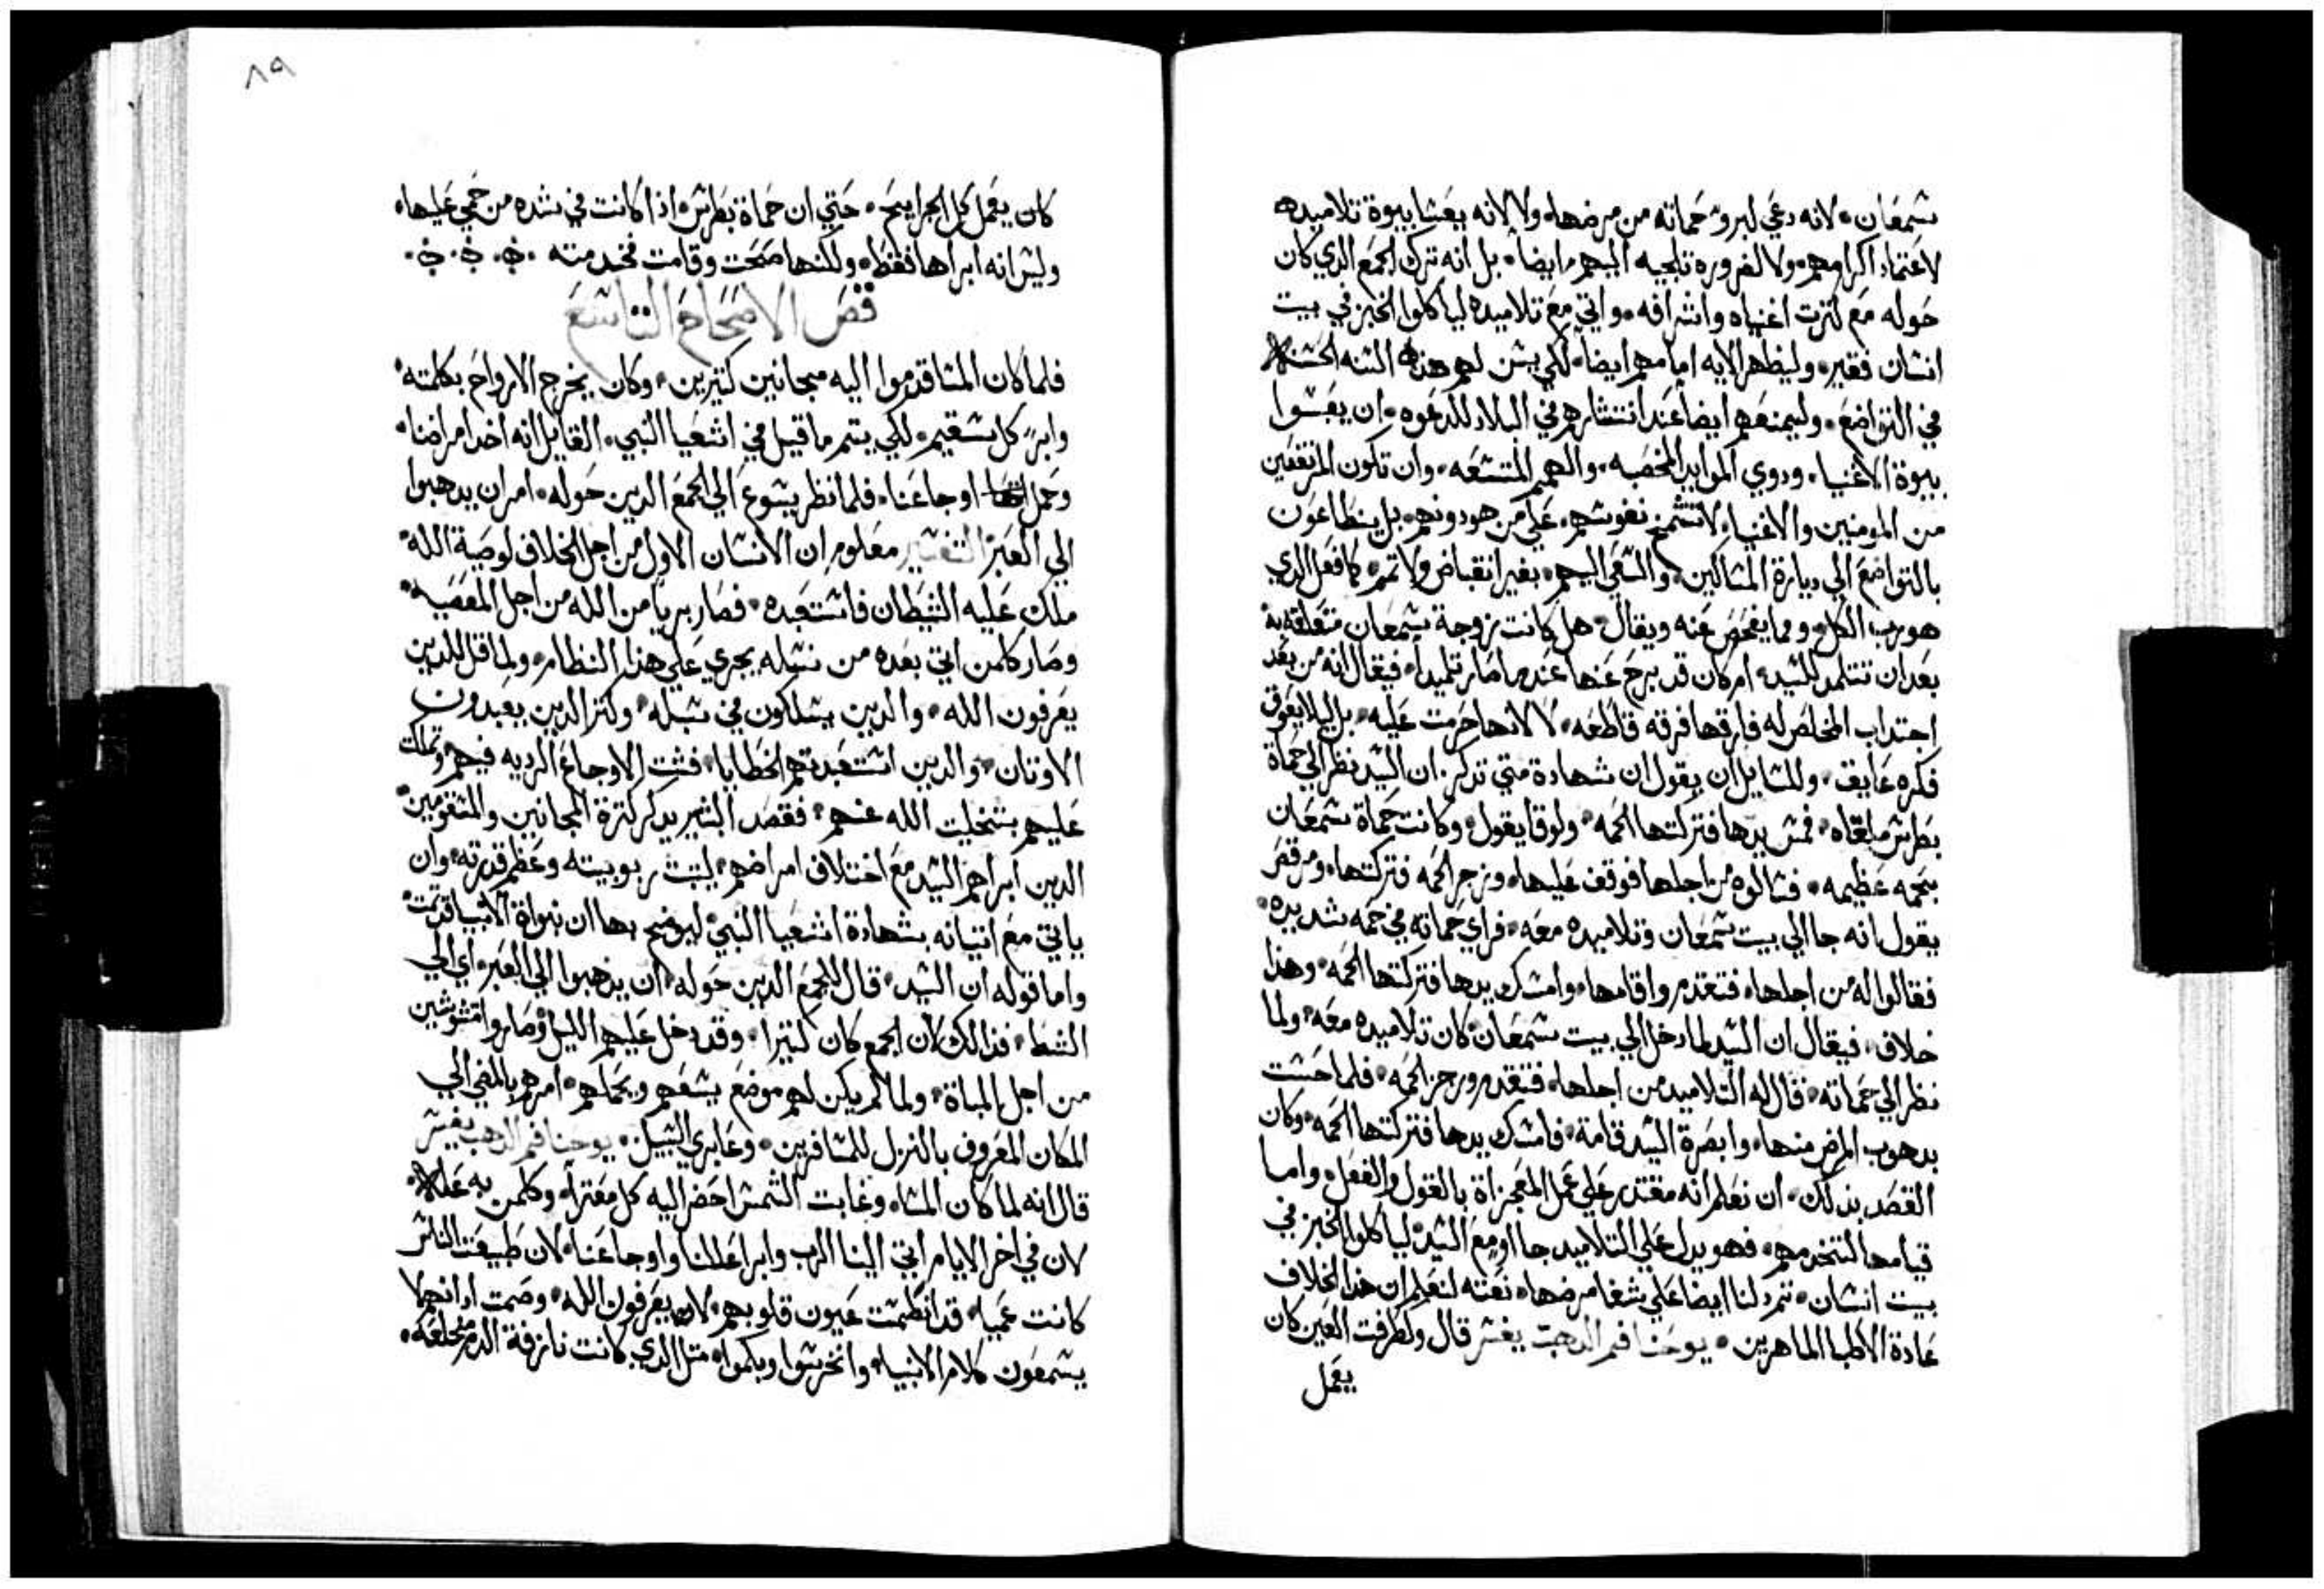 شمعان. لانه دعي لبرو حماته من مرضها. ولا لانه يغشا بيوة تلاميده
لاعتماد اكرامهم. ولا لضروره تلجيه اليهم ايضا. بل انه ترك الجمع الدي كان
حوله مع كترت اغنياه واشرافه. واتي مع تلاميده لياكلوا الخبز في بيت
انسان فقير. وليظهر الايه امامهم ايضا. لكي يسن لهم هده السنه الحسنه
في التواضع. وليمنعهم ايضا عند انتشارهم في البلاد للدعوه. ان يغشوا
بيوة الاغنيا. ودوي الموايد المخصبه. والهمم المتسعه. وان تكون المرتفعين
من المومنين والاغنيا. لا تشمخ نفوسهم. علي من هو دونهم. بل ينطاعون
بالتواضع الي ديارة المساكين. والسعي اليهم. بغير انقباض ولا تمم. كما فعل الدي
هو رب الكل. ومما يفحص عنه ويقال. هل كانت زوجة شمعان متعلقه به
بعد ان تتلمد للسيد. ام كان قد برح عنها عند ما صار تلميدا. فيقال انه من بعد
اجتداب المخلص له فارقها فرقه قاطعه. لا لانها حرمت عليه. بل ليلا يعوق
فكره عايق. وللسايل ان يقول ان شهادة متي تدكر. ان السيد نظر الي حماة
بطرس ملقاه. فمس يدها فتركتها الحمه. ولوقا يقول. وكانت حماة شمعان
بحمه عظيمه. فسالوه من اجلها فوقف عليها. وزجر الحمه فتركتها. ومرقص
يقول انه جا الي بيت شمعان وتلاميده معه. فراي حماته في حمه شديده.
فقالوا له من اجلها. فتقدم واقامها. وامسك يدها فتركتها الحمه. وهدا
خلاف. فيقال ان السيد لما دخل الي بيت شمعان. كان تلاميده معه. ولما
نظر الي حماته. قال له التلاميد من اجلها. فتقدم وزجر الحمه. فلما احست
بدهوب المرض منها. وابصرة السيد قامة. فامسك يدها فتركتها الحمه. وكان
القصد بدلك. ان نعلم انه مقتدر علي عمل المعجزاة بالقول والفعل. واما
قيامها لتخدمهم. فهو يدل علي التلاميد جااو مع السيد. لياكلوا الخبز في
بيت انسان. تم دلنا ايضا علي شفا مرضها. نعته لنعلم ان هدا بخلاف
عادة الاطبا الماهرين. يوحنا فم الدهب يفسر قال ولطرفت العين كان
يعمل
٨٩
كان يعمل كل الجرايح. حتي ان حماة بطرس. ادا كانت في شده من حمي عليها.
وليس انه ابراها فقط. ولكنها صحت وقامت فخدمته
فص الاصحاح التاسع
فلما كان المسا قدموا اليه مجانين كتيرين. وكان يخرج الارواح بكلمته.
وابر كل سقيم. لكي يتم ما قيل في اشعيا النبي. القايل انه اخد امراضنا.
وحمل اوجاعنا. فلما نظر يسوع الي الجمع الدين حوله. امر ان يدهبوا
الي العبر التفسير معلوم ان الانسان الاول من اجل الخلاف لوصية الله.
ملك عليه الشيطان فاستعبده. فصار بريا من الله من اجل المعصيه.
وصار كلمن اتي بعده من نسله يجري علي هدا النظام. ولما قل الدين
يعرفون الله. والدين يسلكون في سبله. وكتر الدين يعبدون
الاوتان. والدين استعبدتهم الخطايا. فشت الاوجاع الرديه فيهم. وتملكت
عليهم بتخليت الله عنهم. فقصد البشير يدكر كترة المجانين والمتقومين.
الدين ابراهم السيد مع اختلاف امراضهم. ليتبت ربوبيته وعظم قدرته. وان
ياتي مع اتيانه بشهادة اشعيا النبي. ليوضح بها ان نبواة الانبيا قد تمت.
واما قوله ان السيد. قال للجمع الدين حوله. ان يدهبوا الي العبر. اي الي
الشط. فدالك لان الجمع كان كتيرا. وقد دخل عليهم الليل. وصاروا متشوشين
من اجل المباة. ولما لم يكن لهم موضع يسعهم ويحملهم. امرهم بالمضي الي
المكان المعروف بالنزل للمسافرين. وعابري السبيل. يوحنا فم الدهب يفسر
قال انه لما كان المسا. وغابت الشمس احضر اليه كل معترا. وكلمن به علله.
لان في اخر الايام اتي الينا الرب وابرا عللنا واوجاعنا. لان طبيعت الناس
كانت عميا. قد انطمست عيون قلوبهم. لانهم يعرفون الله. وصمت ادانهم لا
يسمعون كلام الانبيا. وانخرسوا وبكموا. متل الدي كانت نازفة الدم مخلعه.